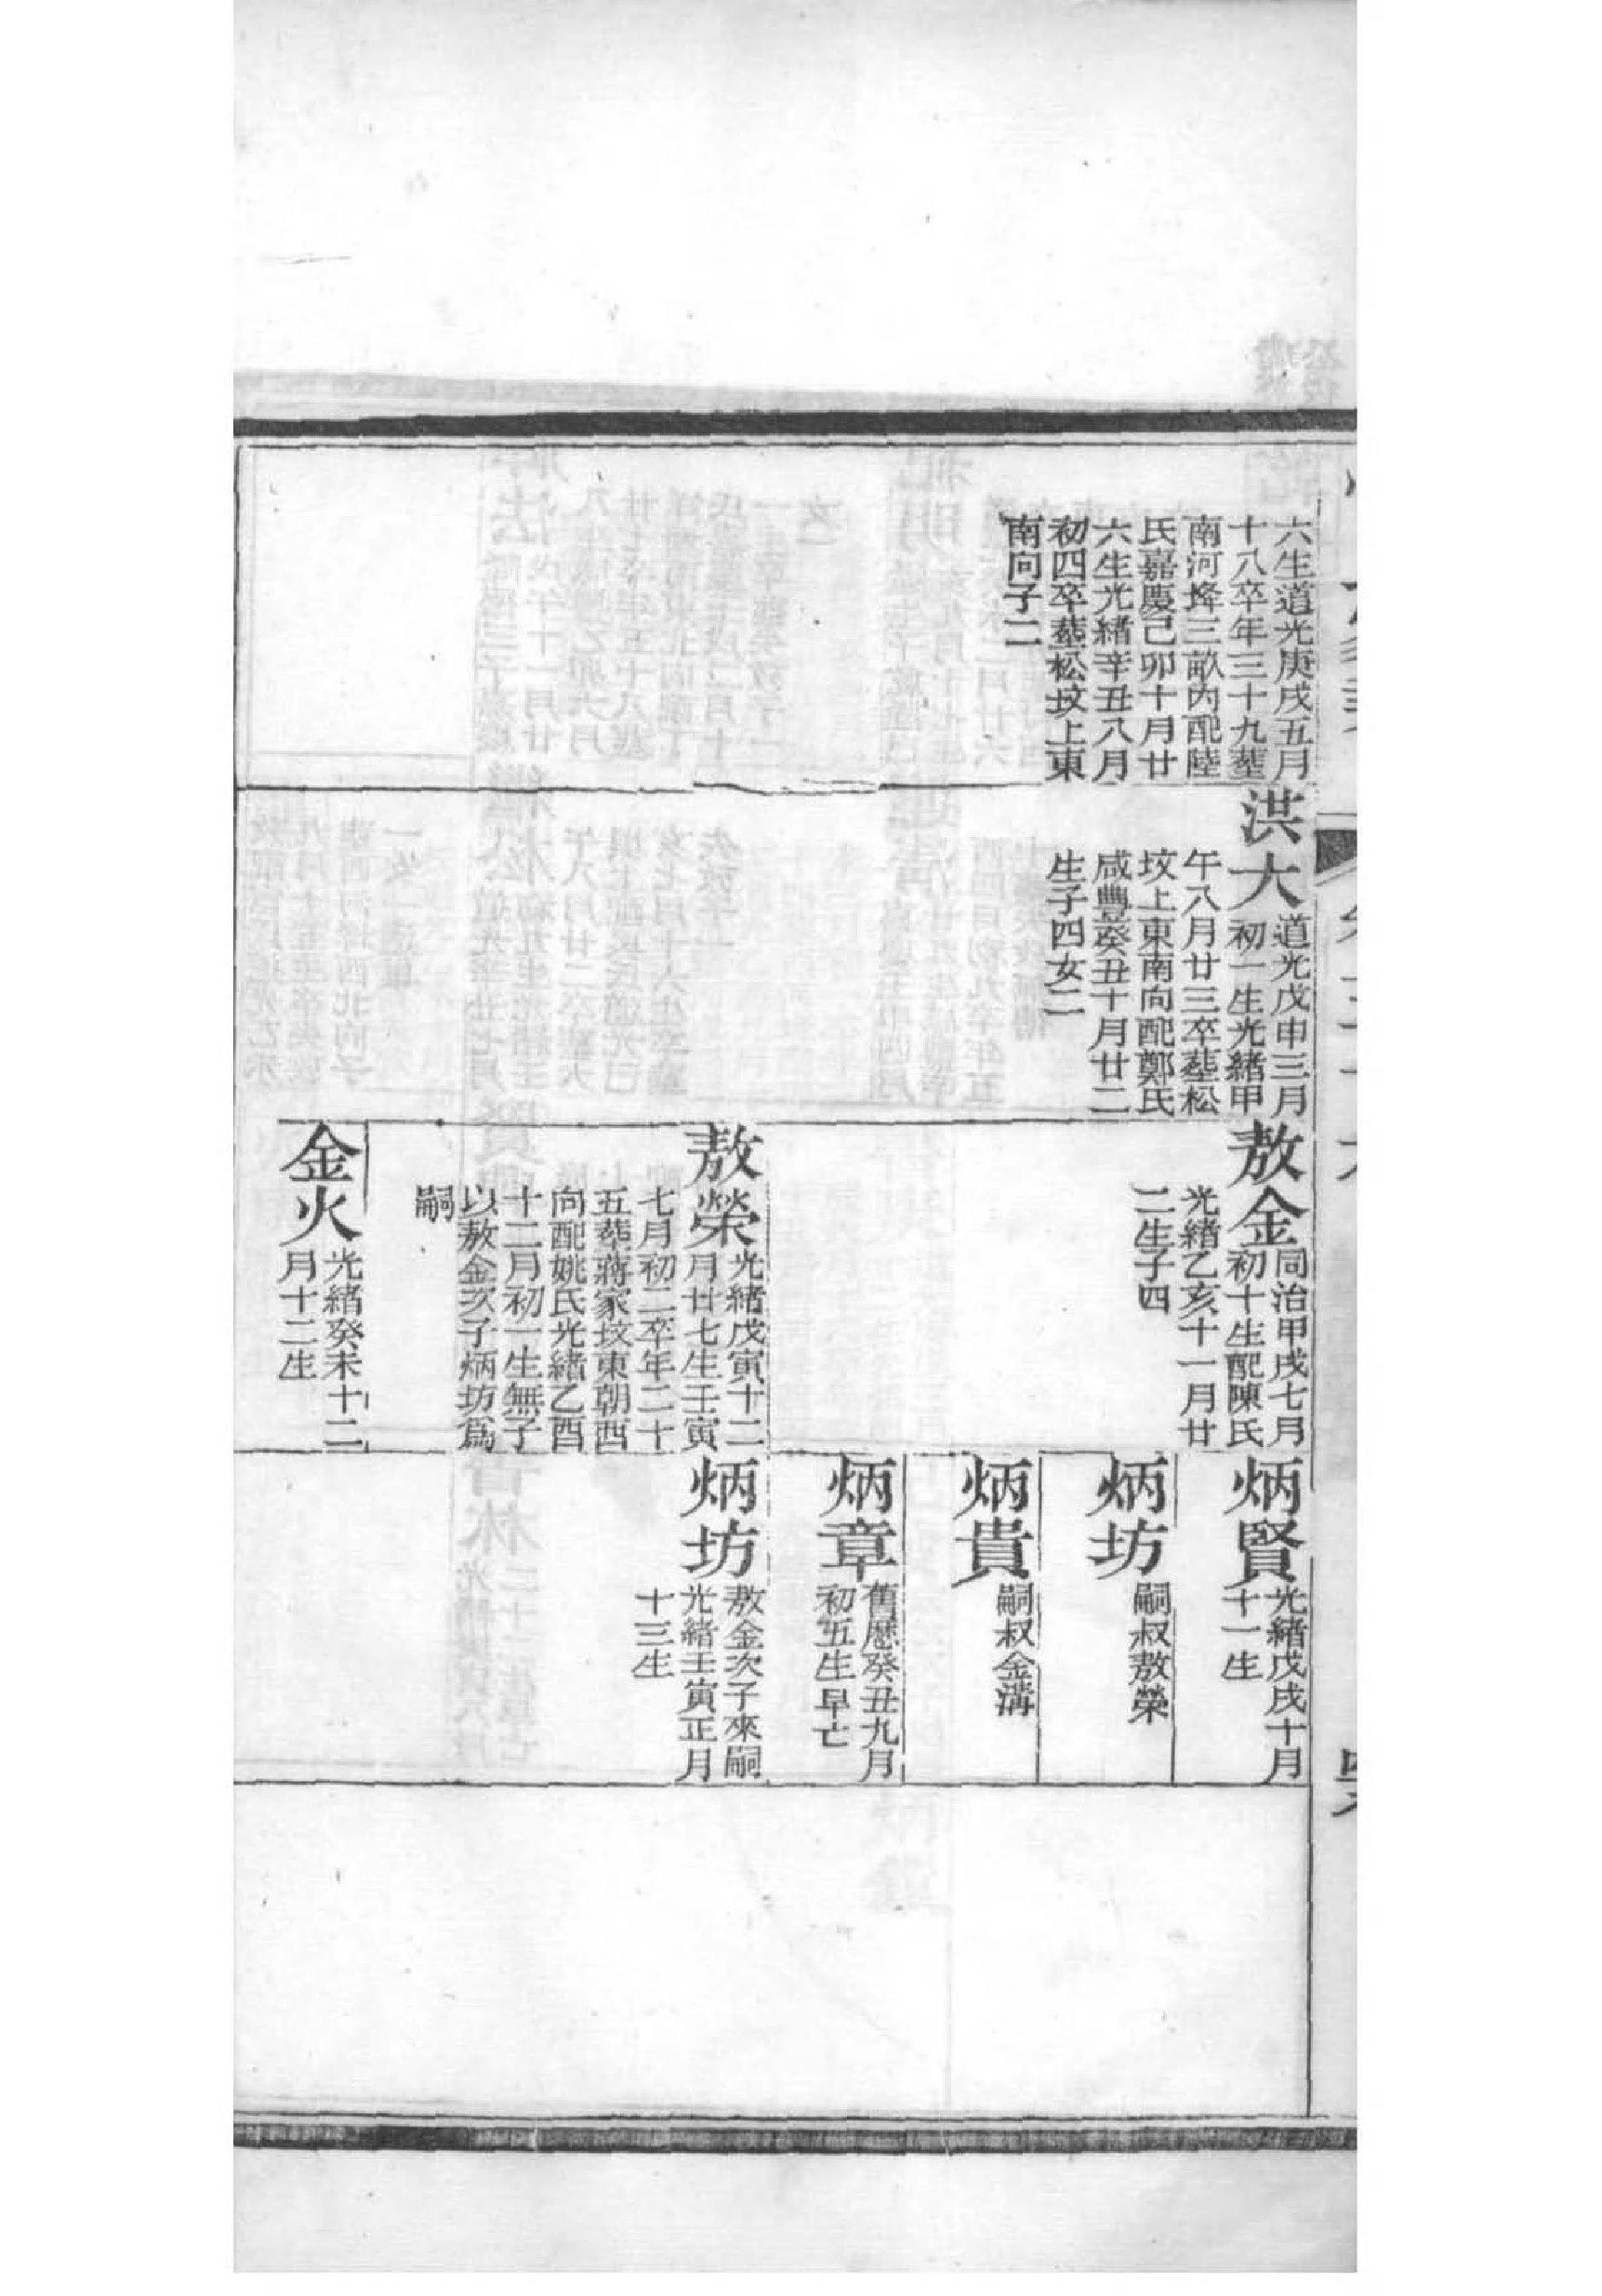 六生道光庚戌五月
十八卒年三十九塟
南河埄三畝內配陸
氏嘉慶己卯十月廿
六生光緒辛丑八月
初四卒塟松坟上東
南向子二
洪大
道光戊申三月
初一生光緒甲
午八月廿三卒塟松
坟上東南向配鄭氏
咸豐癸丑十月廿二
生子四女二
敖金
同治甲戌七月
初十生配陳氏
光緒乙亥十一月廿
二生子四
敖榮
光緒戊寅十二
月廿七生壬寅
七月初二卒年二十
五塟蔣家坟東朝西
向配姚氏光緒乙酉
十二月初一生無子
以敖金次子炳坊爲
嗣
金火
光緒癸未十二
月十二生
炳賢
光緒戊戌十月
十一生
炳坊
嗣叔敖榮
炳貴
嗣叔金溝
炳章
舊歷癸丑九月
初五生早亡
炳坊
敖金次子來嗣
光緒壬寅正月
十三生